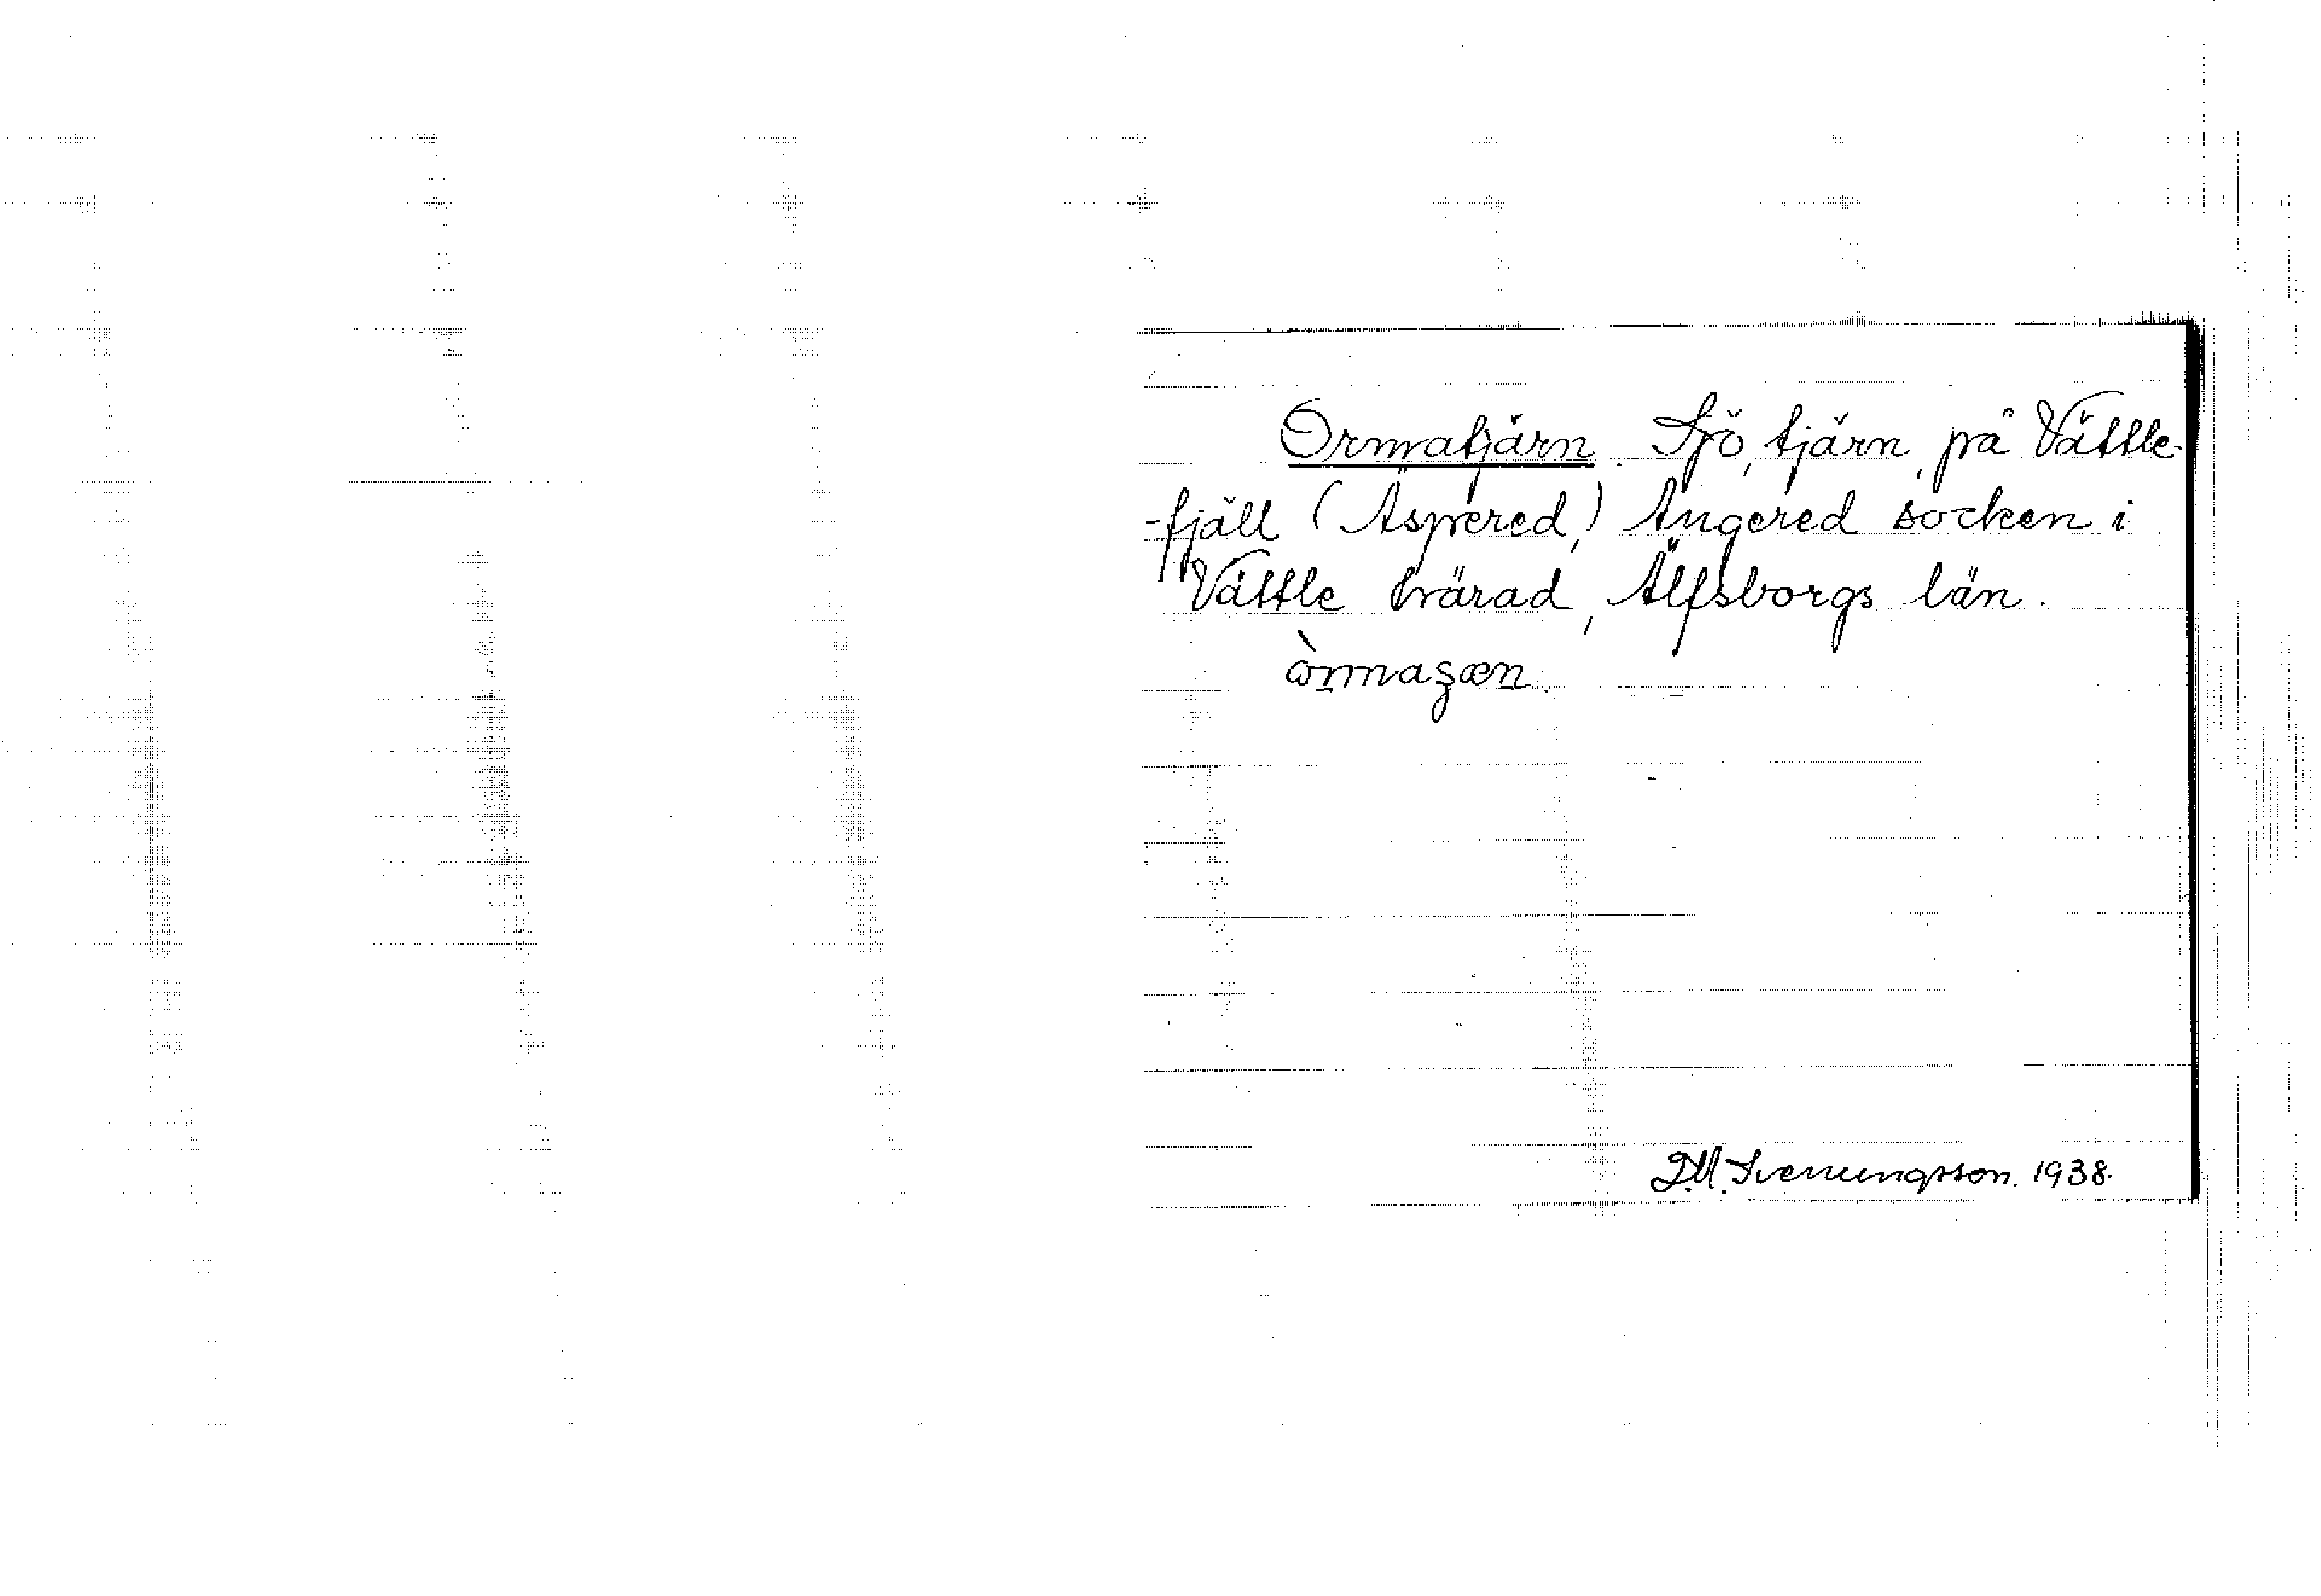 Ormatjärn. Sjö, tjärn, på Vättle-
-fjäll (Äspered,) Angered socken i
Vättle härad, Älfsborgs län.
òrmaʂæn.
D.M. Svenungsson. 1938.